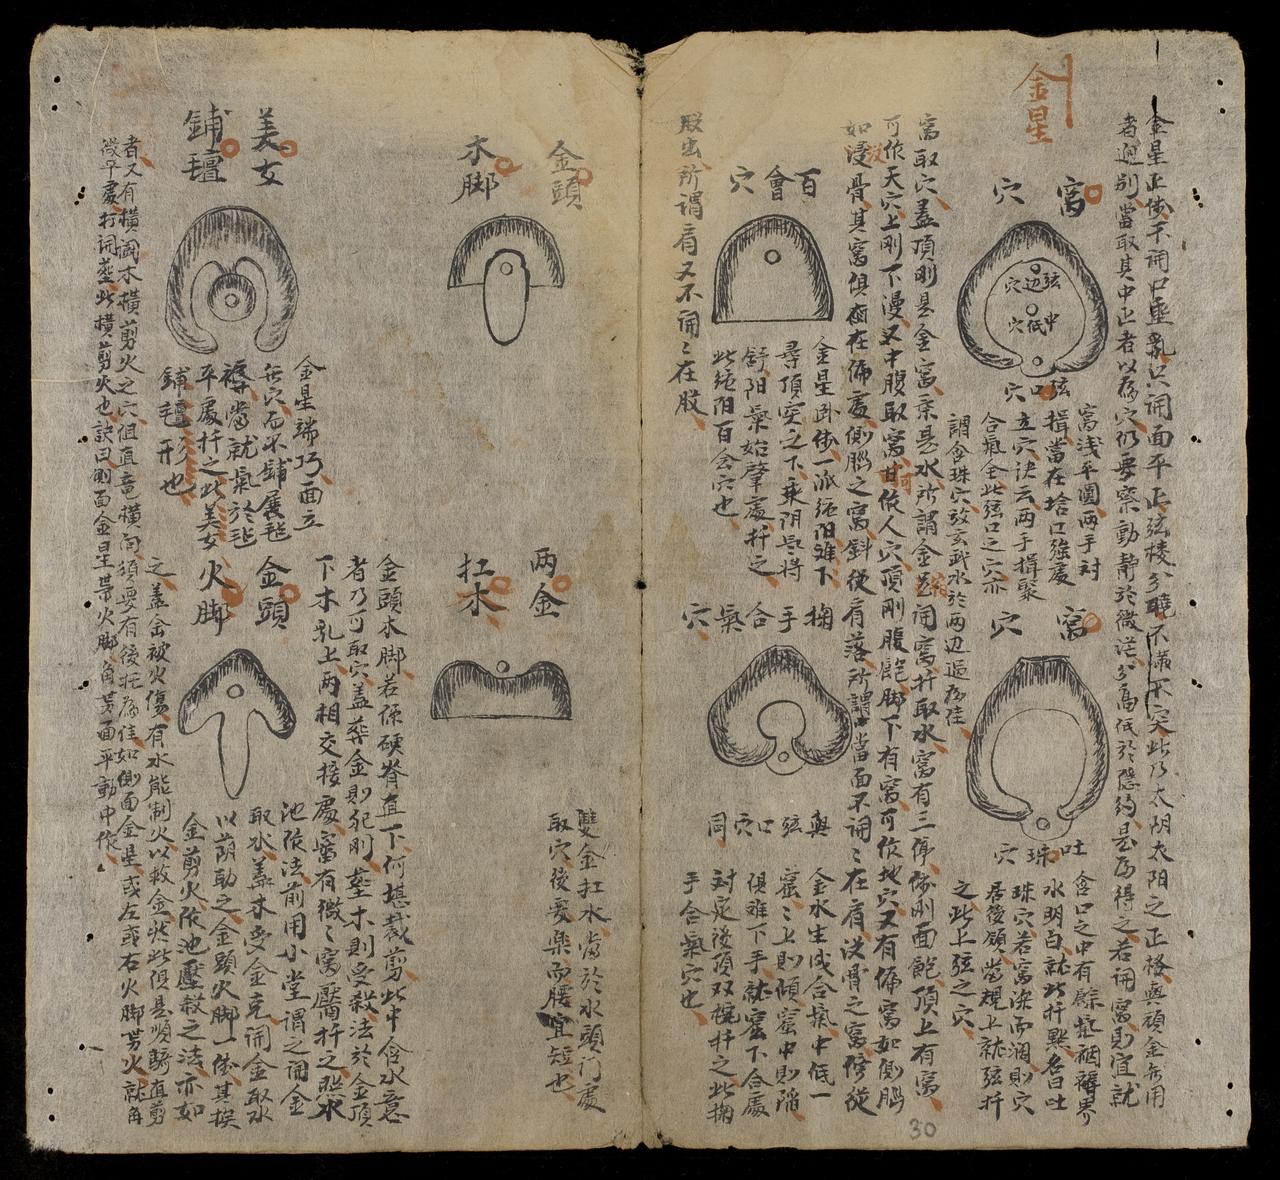 金星
金星正体不開口垂乳只開面平正弦棱分曉不滿不突此乃太阴太阳之正格與頑金無用
者迥別當取其中正者以為穴仍要察動静於微茫分高低於隱約是為得之若開窩則宜就
窩穴
弦边穴
中低穴
弦口穴
窩淺平圓两手对
揖當在垥口強處
立穴訣云两手揖聚
合氣全此弦口之穴亦
謂含珠穴放玄武水於两边過為佳
窩穴
吐珠穴
含口之中有餘氣裀褥界
水明白就此扦點名曰吐
珠穴若窩深而濶則穴
居後頷當規上就弦扦
之此上弦之穴
窩取穴盖頂則是金窩宗是水所謂金星開窩扦取水窩有三停体則面飽頂上有窩
可作天穴上刚下漫又中腹取窩可作人穴頂刚腹飽脚下有窩可作地穴又有偏窩如側腦
如漫骨其窩俱在偏處側腦之窩斜從肩落所謂中當面不開開在肩决骨之窩傍從
股出所谓肩又不開開在股
百會穴
金星卧体一派純阳难下
尋頂突之下乘阴是將
舒阳氣始肇處扦之
此純阳百会穴也
掬手合氣穴
與弦口穴同
金水生成合氣中低一
窟窟上則傾窟中則陷
俱难下手就窟下合處
对定後頂双椀扦之此掬
手合氣穴也
金頭木脚
两金扛水
雙金扛水當於水頭门處
取穴後要樂而腰宜短也
金頭木脚若係硬脊直下何堪裁剪此中含水意
者乃可取穴盖葬金則犯刚葬木則受殺法於金頂
下木乳上两相交接處窩有微微窩靨扦之點水
池依法前用小堂謂之開金
取水盖木受金克開金取水
以荫助之金頭火脚一体其挨
金剪火依池壓殺之法亦如
之盖金被火傷有水能制火以救金然此俱是順騎直剪
美女鋪氊
金星端巧面立
無穴而不鋪展毡
褥當就氣於毡
平處扦之此美女
鋪氊形也
金頭火脚
者又有横園木横剪火之穴但直竜横向須要有後托為佳如側面金星或左或右火脚带火就角
微平處打洞塟此横剪火也訣曰側面金星带火脚角带面平動中作
30